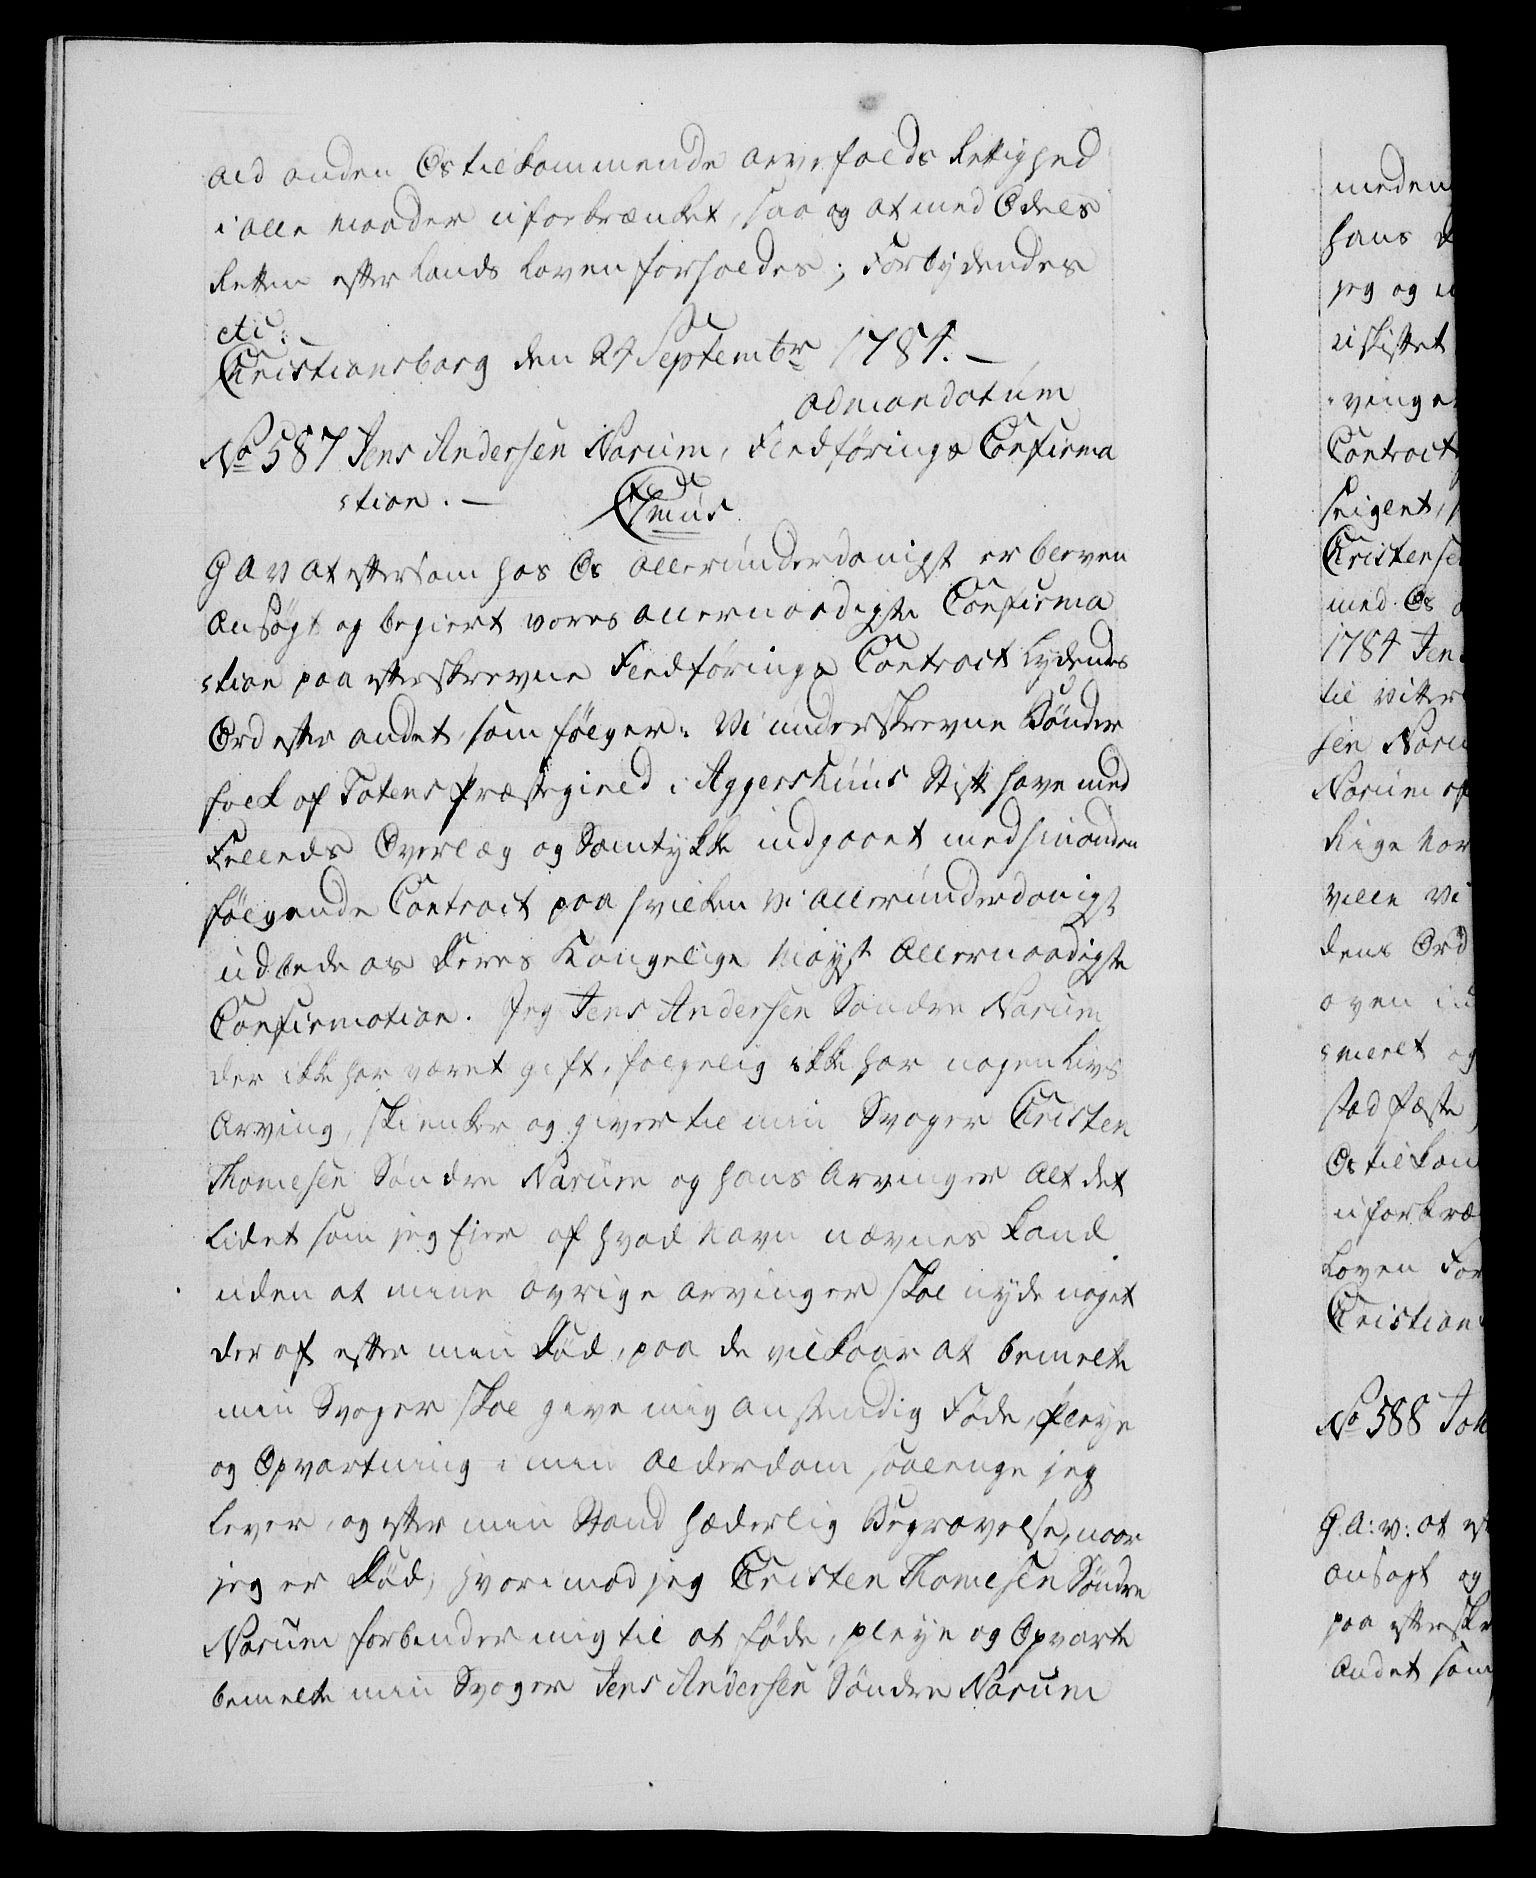 ald anden Os tilkommende arvefalds Rettighed
i alle maader uforkrænket, saa og at med Odels
Retten efter Lands Loven forholdes; Forbydendes
etc:
Christiansborg den 24 Septembr 1784. –
ad mandatum
No 587 Jens Andersen Narum, Fledførings Confirma
:tion. –
G A V At eftersom hos Os allerunderdanigst er bleven
Ansøgt og begiert vores allernaadigste Confirma
:tion paa efterskrevne Fledførings Contract Lydende
Ord efter andet som følger: Vi underskrevne Bønder
folk af Totens Præstegield i Aggershuus Stift have med
Felleds Overlæg og Samtykke indgaaet med hinanden
følgende Contract paa hvilken vi allerunderdanigst
udbede os Deres Kongelige Mayst Allernaadigste
Confirmation. Jeg Jens Andersen Søndre Narum
der ikke har været gift, følgelig ikke har nogen Livs
Arving, skienker og giver til min Svoger Cristen
Thomesen Søndre Narum og hans Arvinger alt det
Lidet som jeg Eier af hvad Navn nævnes kand
uden at mine øvrige arvinger skal nyde noget
der af efter min Død, paa de vilkaar at bemelte
min Svoger skal give mig anstendig Føde, Pleye
og Opvartning i min Alderdom saalenge jeg
Lever, og efter min Stand hæderlig Begravelse, naar
jeg er Død; hvorimod jeg Cristen Thomesen Søndre
Narum forbinder mig til at føde, pleye og Opvarte
bemelte min Svoger Jens Andersen Søndre Narum
meden
hans
jeg og
uskiftet
:vinge
Contract
Cristense
med Os
1784 Jen
til Vitter
sen Naru
Narum af
Rige Nor
ville Vi
dens Ord
oven in
:meret og
stadfæste
Os tilkom
uforkræ
Loven For
Cristian
No 588 Joh
G. A: V: at ef
ansøgt og
paa efterskre
Andet som